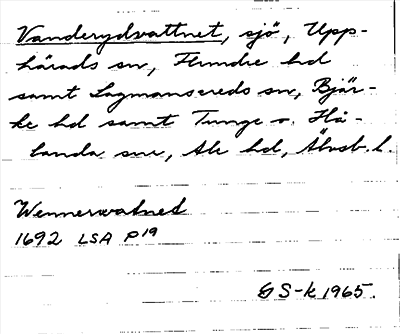 Vanderydvattnet, sjö, Upp-
härads sn, Flundre hd
samt Lagmansereds sn, Bjär-
ke hd samt Tunge o. Hå-
landa snr, Ale hd, Älvsb. l.
Wennerwatned
1692 LSA P19
GS-k 1965.